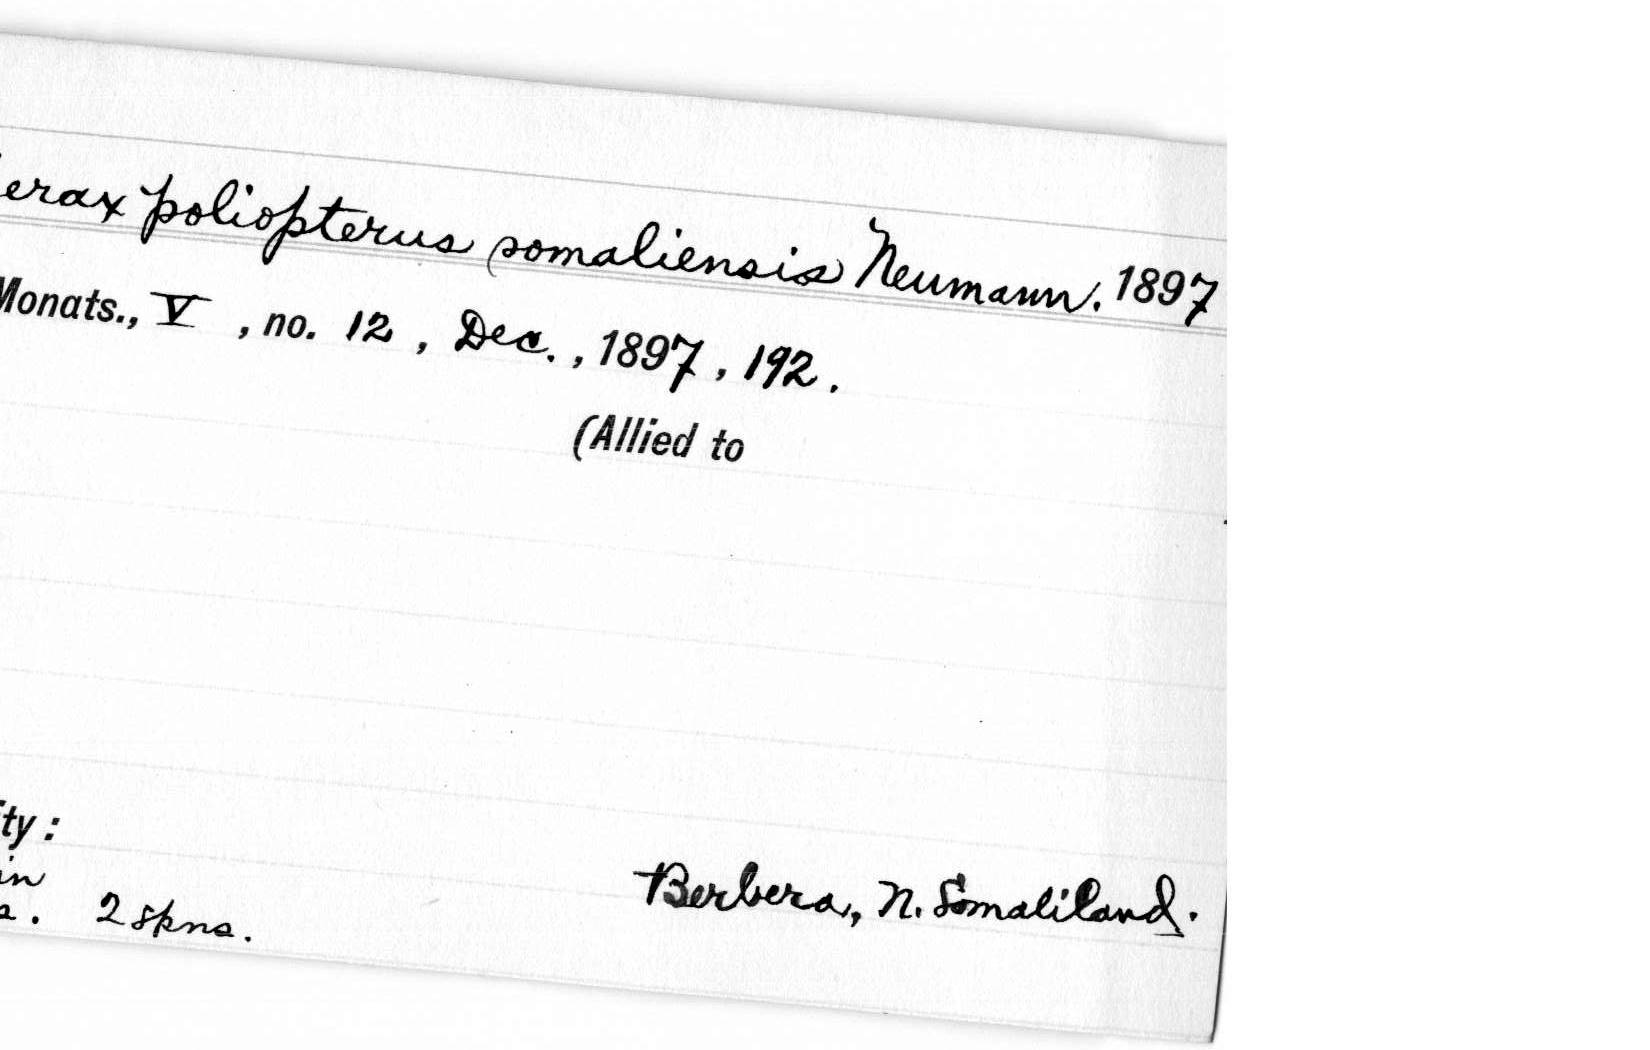 erax poliopterus somaliensis Neumann. 1897
Monats., V , no. 12 , Dec. , 1897 , 192 .
(Allied to
ity :
in
a. 2 skns.
Berbera, N. Somaliland.